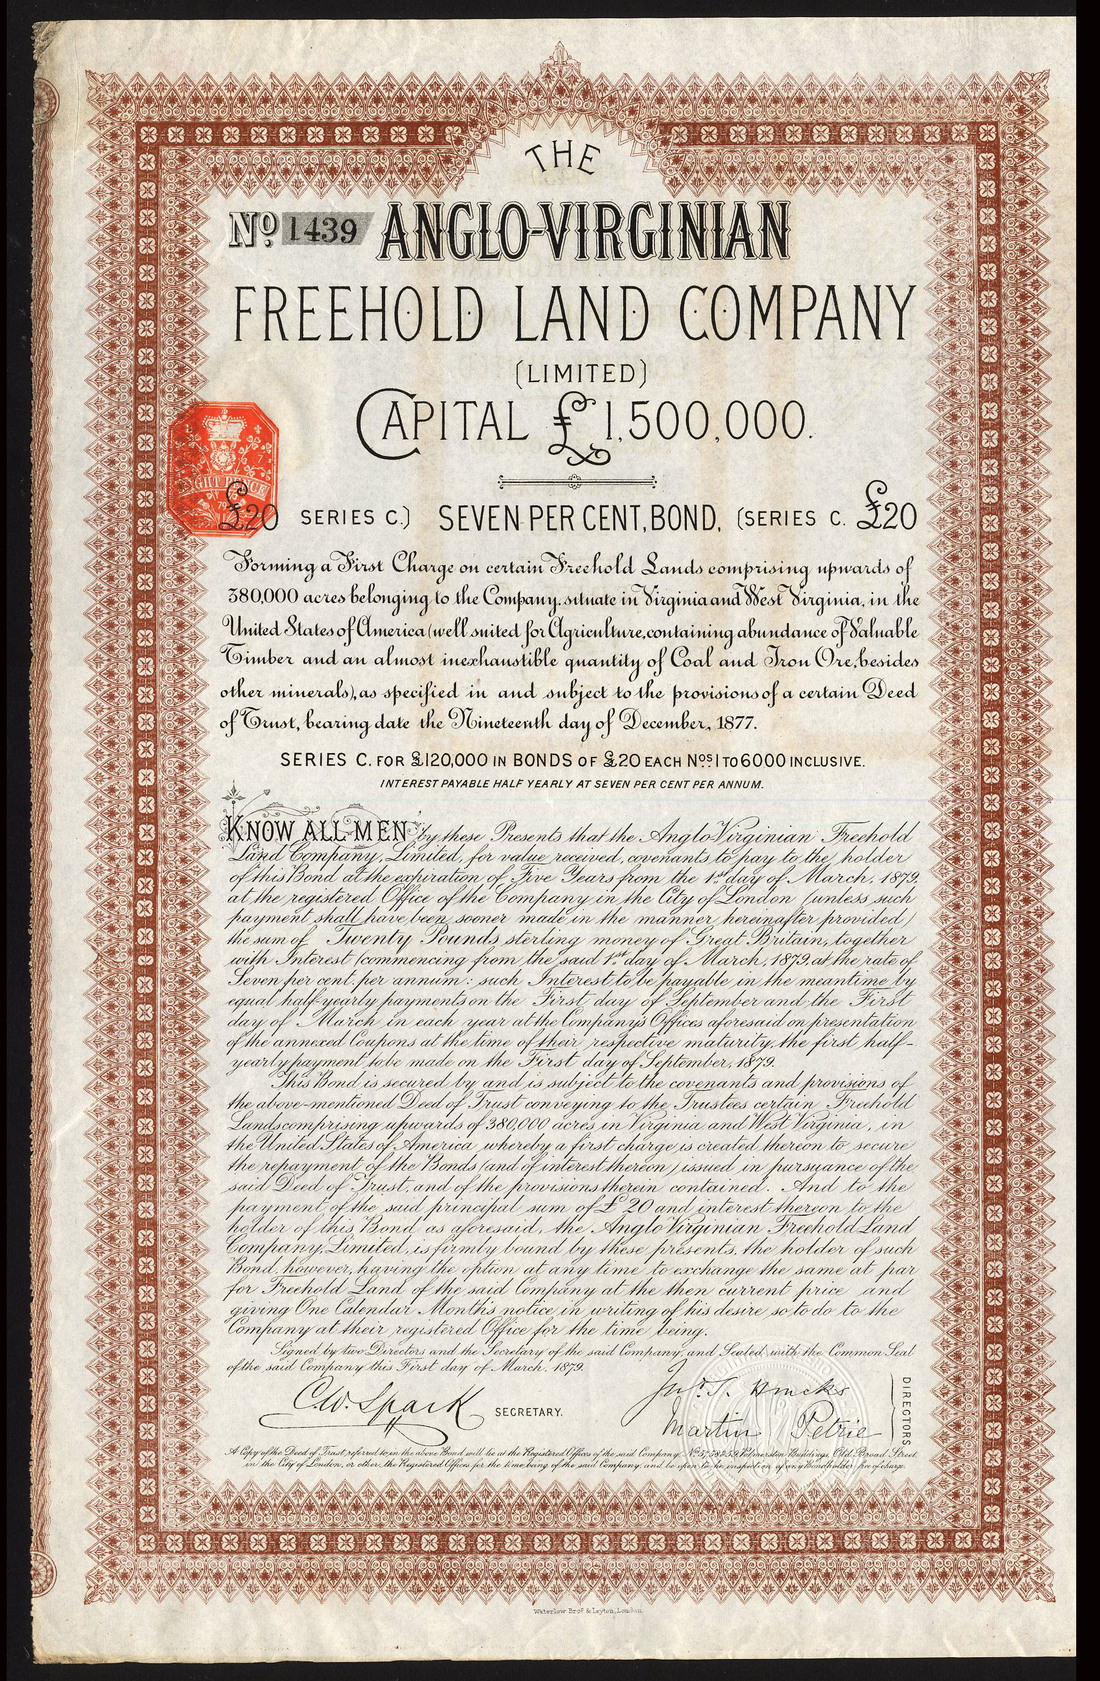 THE
No. 1439 ANGLO-VIRGINIAN
FREEHOLD LAND COMPANY
(LIMITED)
CAPITAL £1,500,000.
£20 SERIES C.) SEVEN PER CENT, BOND, (SERIES C. £20
Forming a First Charge on certain Freehold Lands comprising upwards of
380,000 acres belonging to the Company, situate in Virginia and West Virginia, in the
United States of America (well suited for Agriculture, containing abundance of Valuable
Timber and an almost inexhaustible quantity of Coal and Iron Ore, besides
other minerals), as specified in and subject to the provisions of a certain Deed
of Trust, bearing date the Nineteenth day of December, 1877.
SERIES C. FOR £120,000 IN BONDS OF £20 EACH Nos. 1 TO 6000 INCLUSIVE.
INTEREST PAYABLE HALF YEARLY AT SEVEN PER CENT PER ANNUM.
KNOW ALL MEN by these Presents that the Anglo-Virginian Freehold
Land Company, Limited, for value received, covenants to pay to the holder
of this Bond at the expiration of Five Years from the 1st day of March, 1879,
at the registered Office of the Company in the City of London (unless such
payment shall have been sooner made in the manner hereinafter provided)
the sum of Twenty Pounds sterling money of Great Britain, together
with Interest (commencing from the said 1st day of March, 1879, at the rate of
Seven per cent. per annum: such Interest to be payable in the meantime by
equal half-yearly payments on the First day of September and the First
day of March in each year at the Company's Offices aforesaid on presentation
of the annexed Coupons at the time of their respective maturity, the first half-
yearly payment to be made on the First day of September, 1879.
This Bond is secured by and is subject to the covenants and provisions of
the above-mentioned Deed of Trust conveying to the Trustees certain Freehold
Lands comprising upwards of 380,000 acres in Virginia and West Virginia, in
the United States of America, whereby a first charge is created thereon to secure
the repayment of the Bonds (and of interest thereon) issued in pursuance of the
said Deed of Trust, and of the provisions therein contained. And to the
payment of the said principal sum of £20 and interest thereon to the
holder of this Bond as aforesaid, the Anglo Virginian Freehold Land
Company, Limited, is firmly bound by these presents, the holder of such
Bond, however, having the option at any time to exchange the same at par
for Freehold Land of the said Company at the then current price and
giving One Calendar Month's notice in writing of his desire so to do to the
Company at their registered Office for the time being.
Signed by two Directors and the Secretary of the said Company, and Sealed with the Common Seal
of the said Company this First day of March, 1879.
C.W. Spark SECRETARY.
Jno. T. Hincks
Martin Petrie
DIRECTORS
A Copy of the Deed of Trust, referred to in the above Bond will lie at the Registered Offices of the said Company, Palmerston Buildings, Old Broad Street
in the City of London, or other the Registered Offices for the time being of the said Company, and be open to the inspection of any Bondholder free of charge.
Waterlow Bros. & Layton, London.